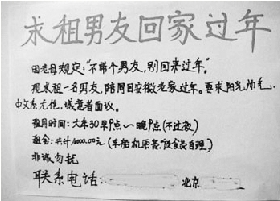 求租男友回家过年
因老母规定："不带个男友,别回来过年。"
现求租一名男友,陪同回安徽老家过年。要求阳光,帅气,
中文系尤佳,诚意者面议。
租用时间:大年30早8点～晚8点(不过夜)
租金:共计1000.00元(车船机票等,饮食我自理)
非诚勿扰
联系电话
北京